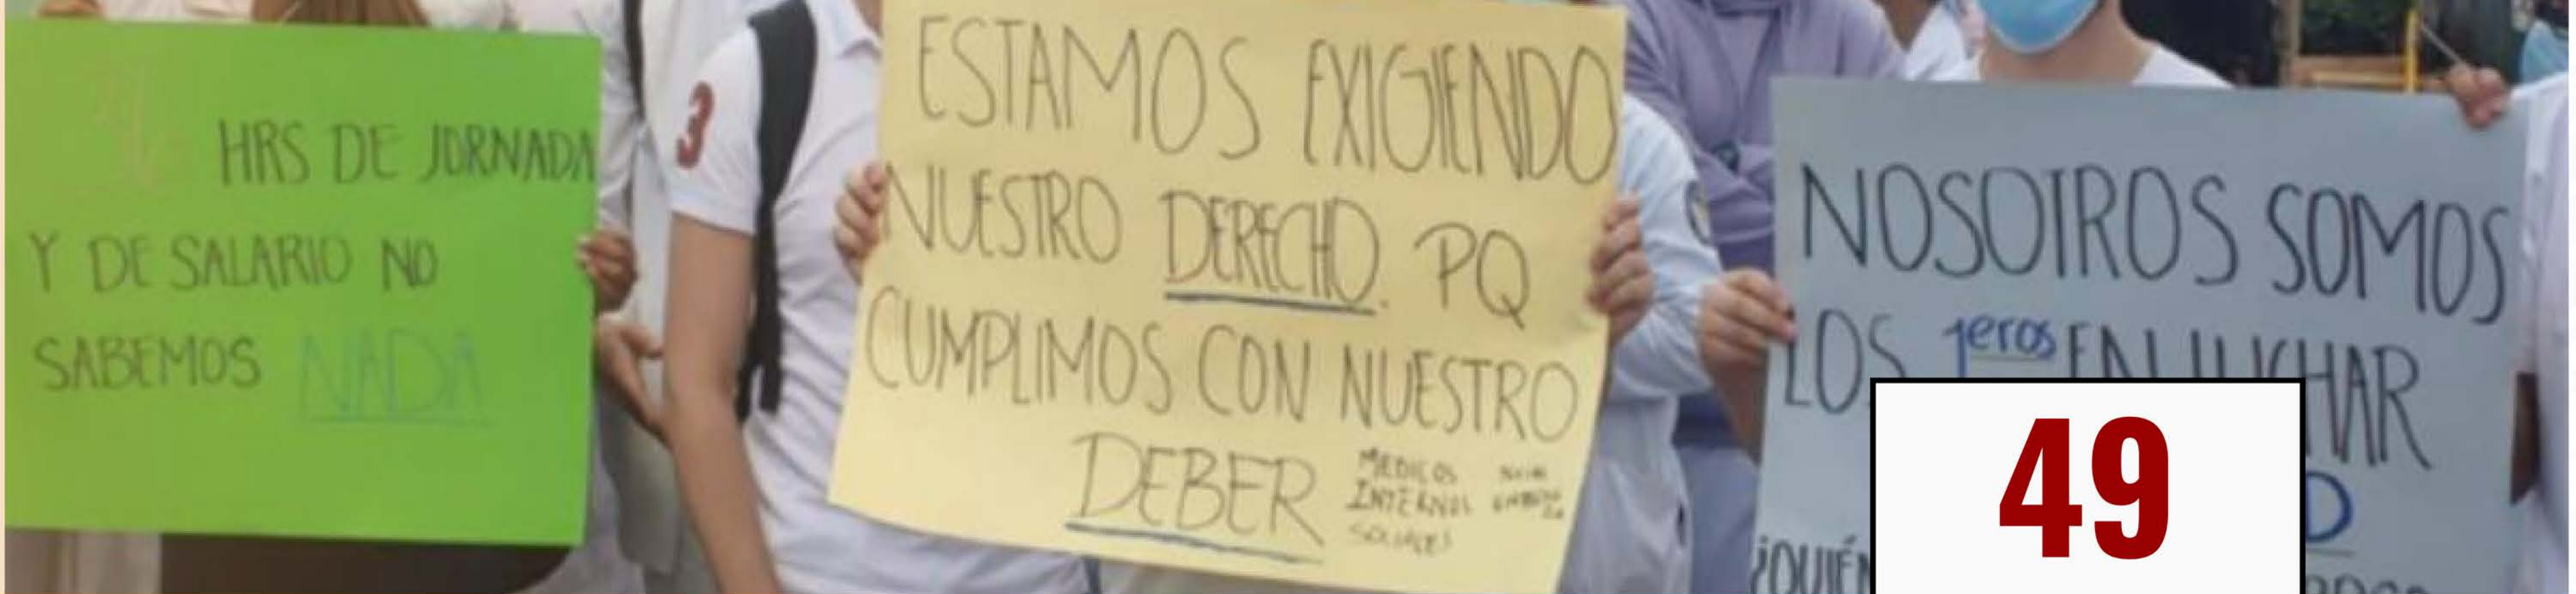 HRS DE JORNADA
Y DE SALARIO NO
SABEMOS NADA
3
ESTAMOS EXIGIENDO
NUESTRO DERECHO. PQ
CUMPLIMOS CON NUESTRO
DEBER
MEDICOS
INTERNOS
SOCIALES
NOSOTROS SOMOS
LOS 1eros EN LUCHAR
¿QUIÉN
49